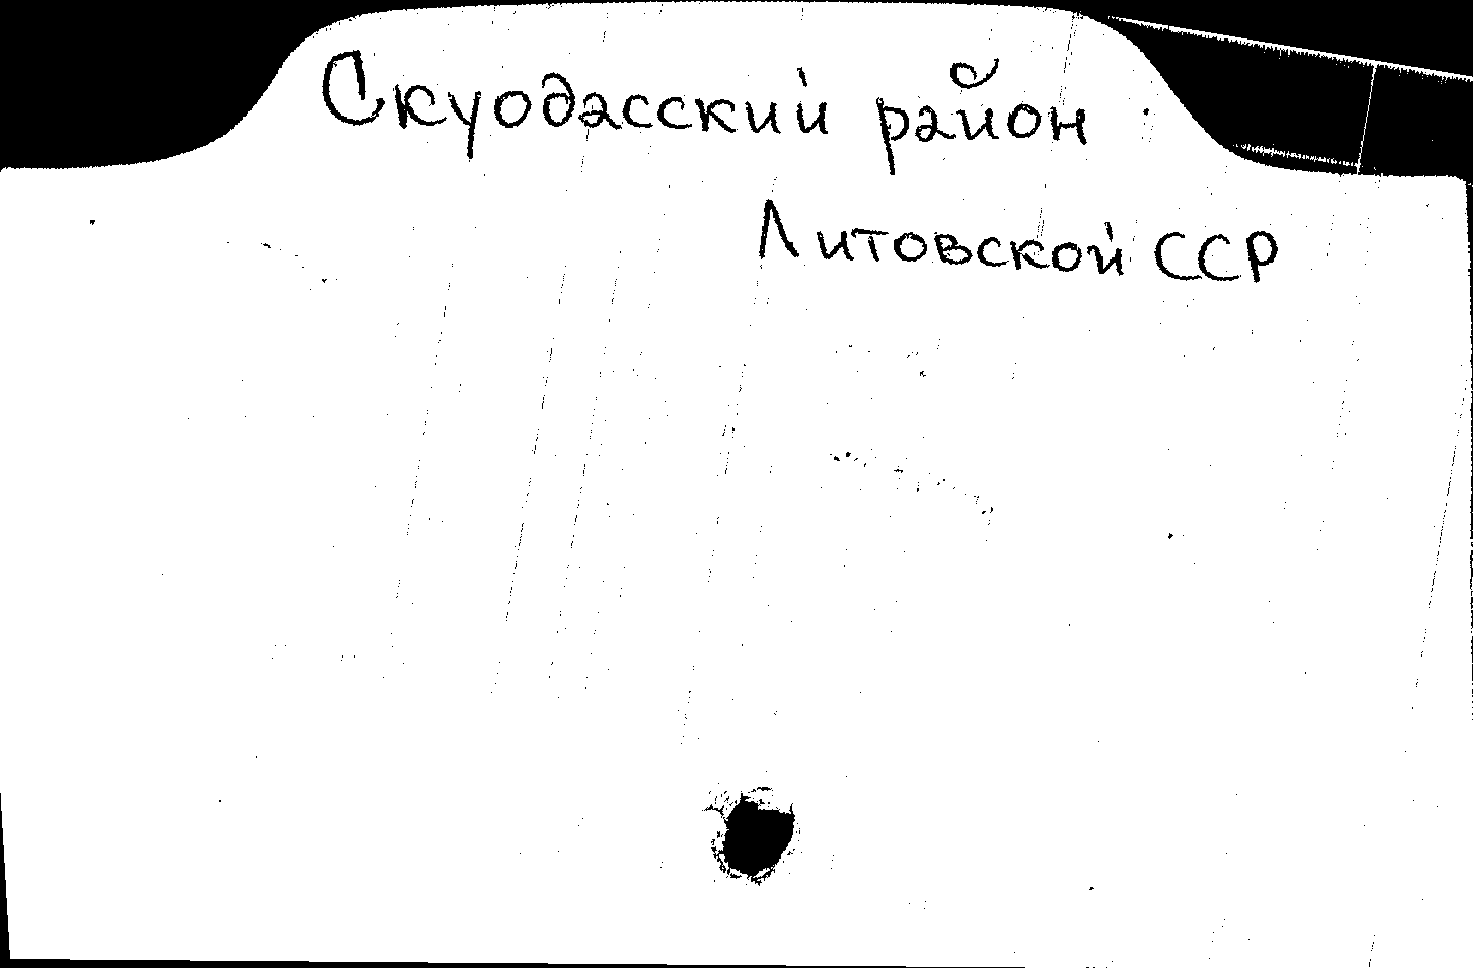 Скуодасский район
Литовской ССР